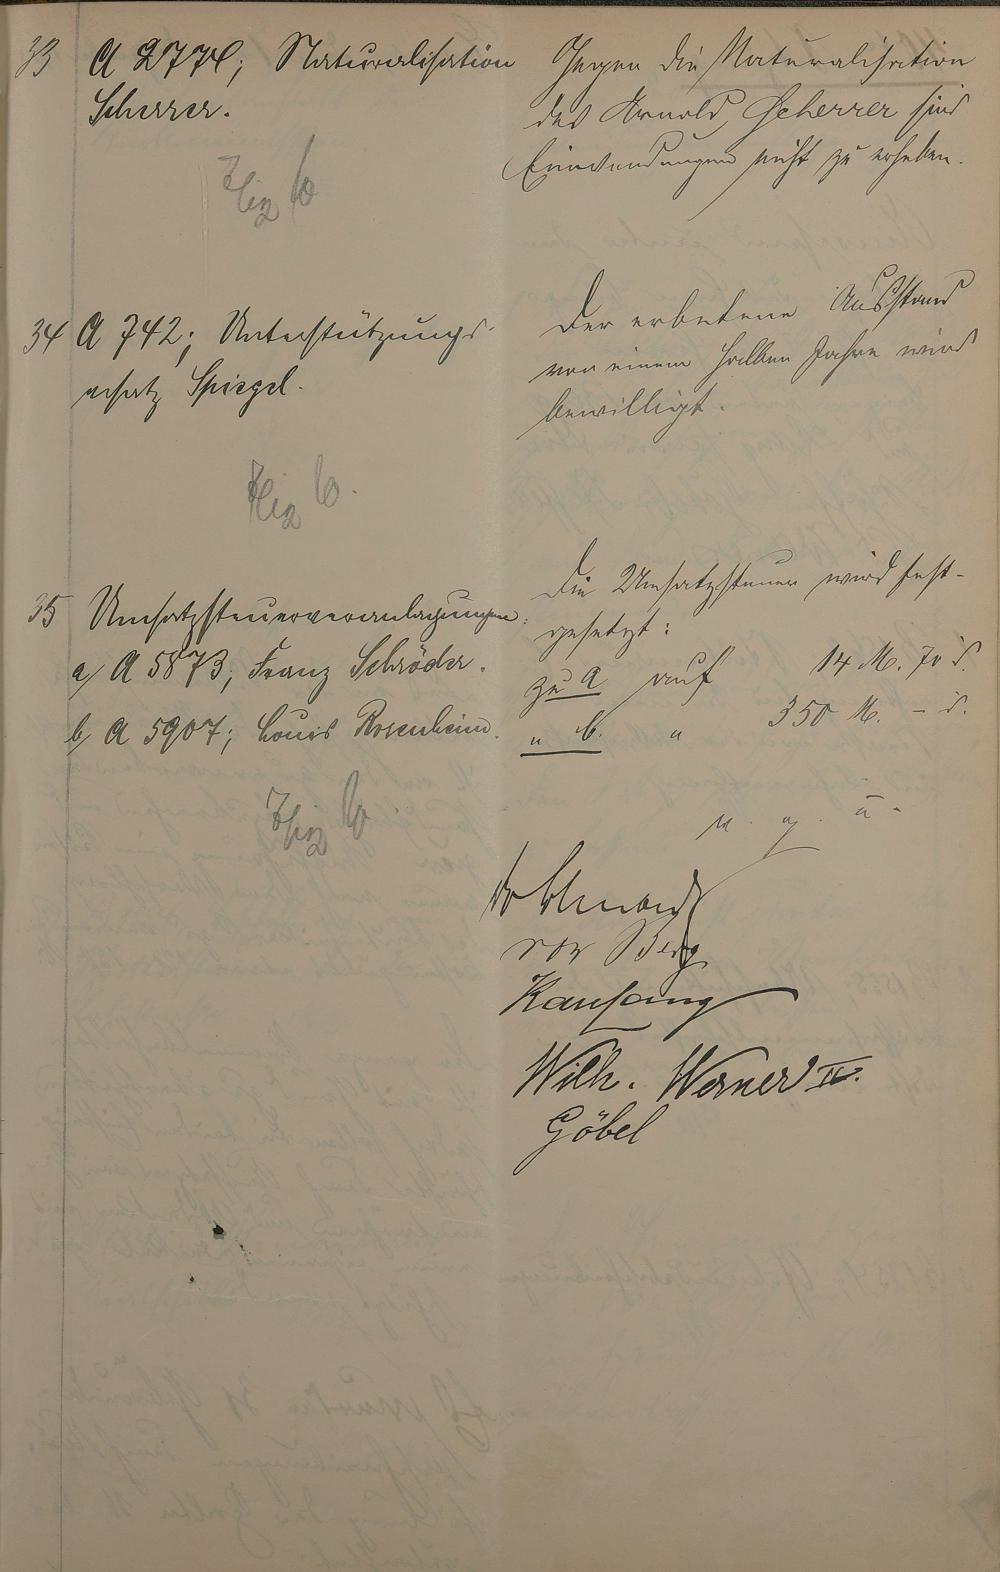 33 A 2774; Naturalisation
Scherrer.
Gegen die Naturalisation
des Arnold Scherrer sind
Einwendungen nicht zu erheben.
34 A 742; Unterstützungs-
ersatz Spiegel.
Der erbetene Ausstand
von einem halben Jahre wird
bewilligt.
35 Umsatzsteuerveranlagungen:
a/ A 5873; Franz Schröder.
b/ A 5907; Louis Rosenheim.
Die Umsatzsteuer wird fest-
gesetzt:
zu a auf 14 M. 70 d.
" b. " 350 M. – d.
v. g. u.
von Berg
Kaufang
Wilh. Werner IV.
Göbel